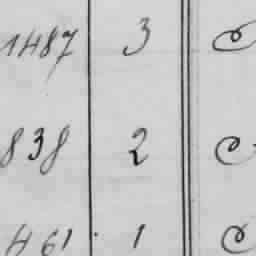 1487 3
838 2
461 1